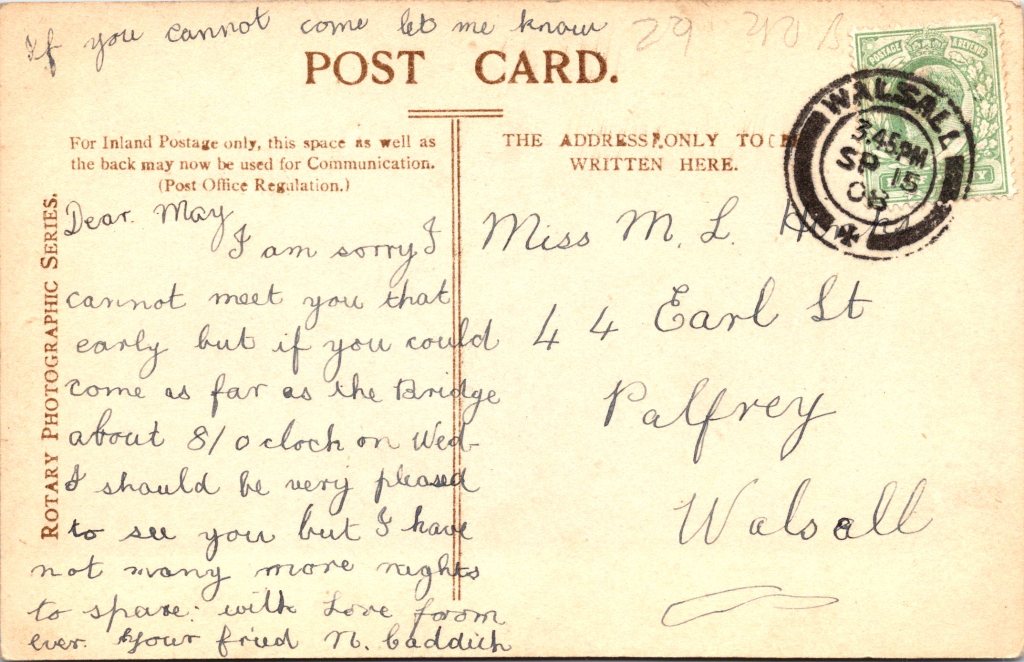 If you cannot come let me know
29
POST CARD.
For Inland Postage only, this space as well as
the back may now be used for Communication.
(Post Office Regulation.)
THE ADDRESS ONLY TO
WRITTEN HERE.
POSTAGE REVENUE
WALSALL
3.45PM
SP 15
08
ROTARY PHOTOGRAPHIC SERIES.
Dear. May
I am sorry I
cannot meet you that
early but if you could
come as far as the Bridge
about 8/0 cloch on Wed-
I should be very pleased
to see you but I have
not many more nights
to spare. with Love from
ever. Your fried N. Caddick
Miss M. L.
44 Earl St
Palfrey
Walsall